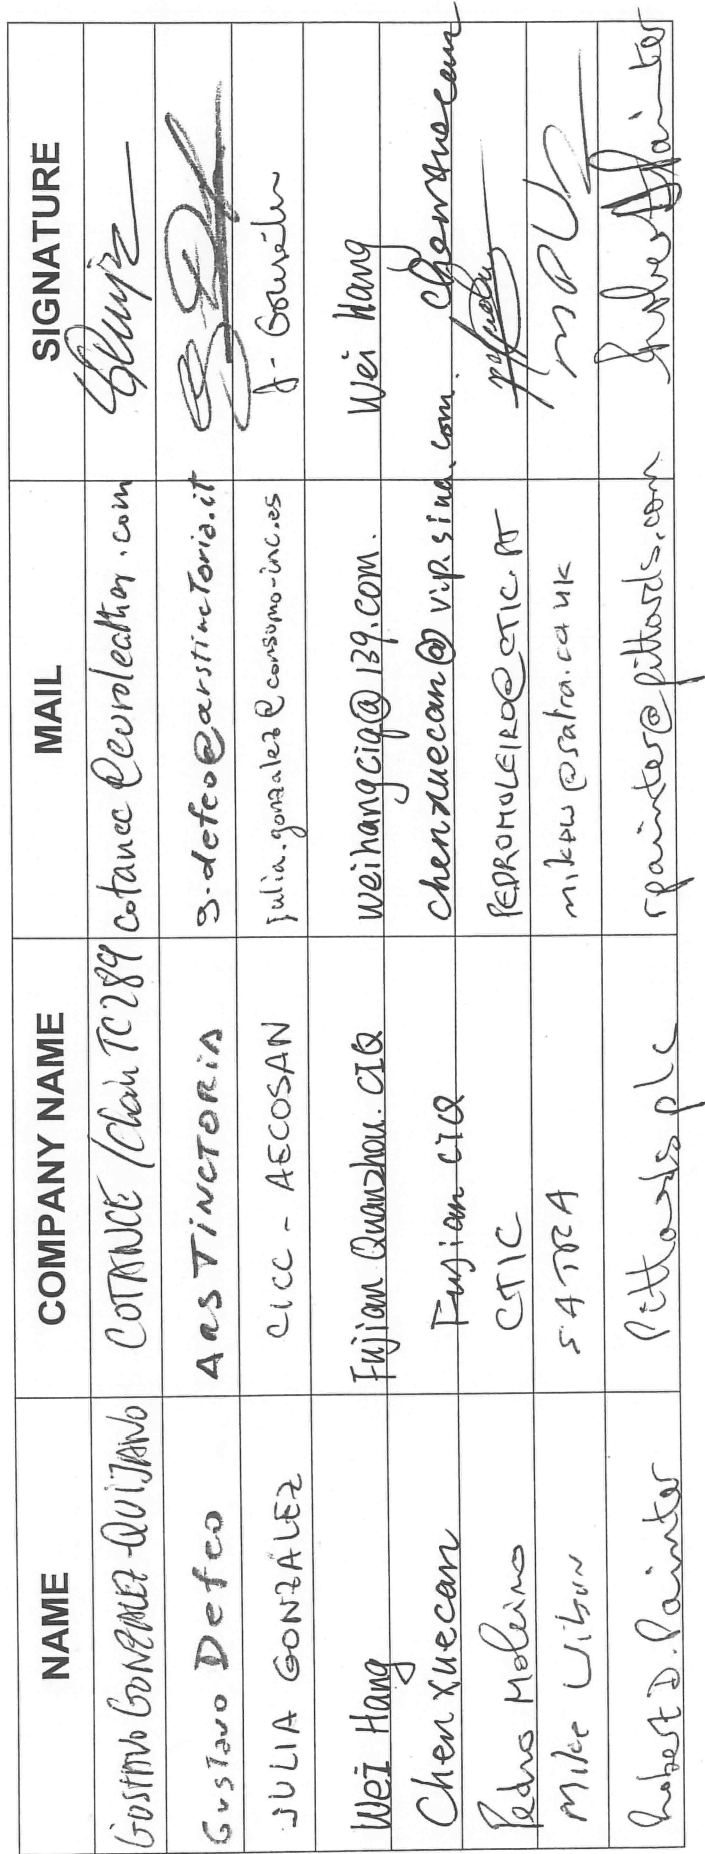 NAME COMPANY NAME MAIL SIGNATURE
GUSTAVO GONZALEZ-QUIJANO COTANCE /Chair TC289 cotance@euroleather.com
Gustavo Defeo ARS TINCTORIA g.defeo@arstinctoria.it
JULIA GONZÁLEZ CICC - AECOSAN julia.gonzalez@consumo-inc.es J- González
Wei Hang Fujian Quanzhou. CIQ weihangciq@139.com. Wei Hang
Chen Xuecan Fujian CIQ chenxuecan@vip.sina.com. Chenxuecan
Pedro Moleiro CTIC PEDROMOLEIRO@CTIC.PT
Mike Wilson SATRA mikew@satra.co.uk
Robert D. Painter Pittards plc rpainter@pittards.com Robert Painter